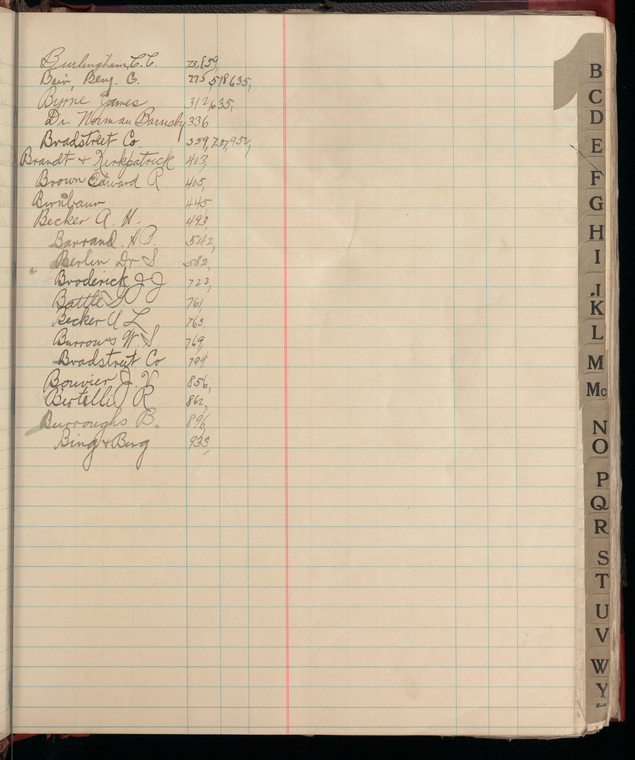 Burlingham, C. C. 73, 859,
Bain Benj. G. 275 518 635,
Byrne James 312, 635,
Dr. Norman Barnsby 336
Bradstreet Co 359, 727, 952,
Brandt & Kirkpatrick 403,
Brown Edward R 405,
Birnbaum 445,
Becker A. H. 493,
Barrand. H B. 542,
Berlin Dr S. 582,
Broderick J J. 722,
Battle 761
Becker A L 763
Burrows W S. 769
Bradstreet Co 794
Bouvier J. V. 856,
Birtelli J R 862,
Burroughs B. 896
Bing & Bing 933,
B
C
D
E
F
G
H
I
J
K
L
M
Mc
N
O
P
Q
R
S
T
U
V
W
Y